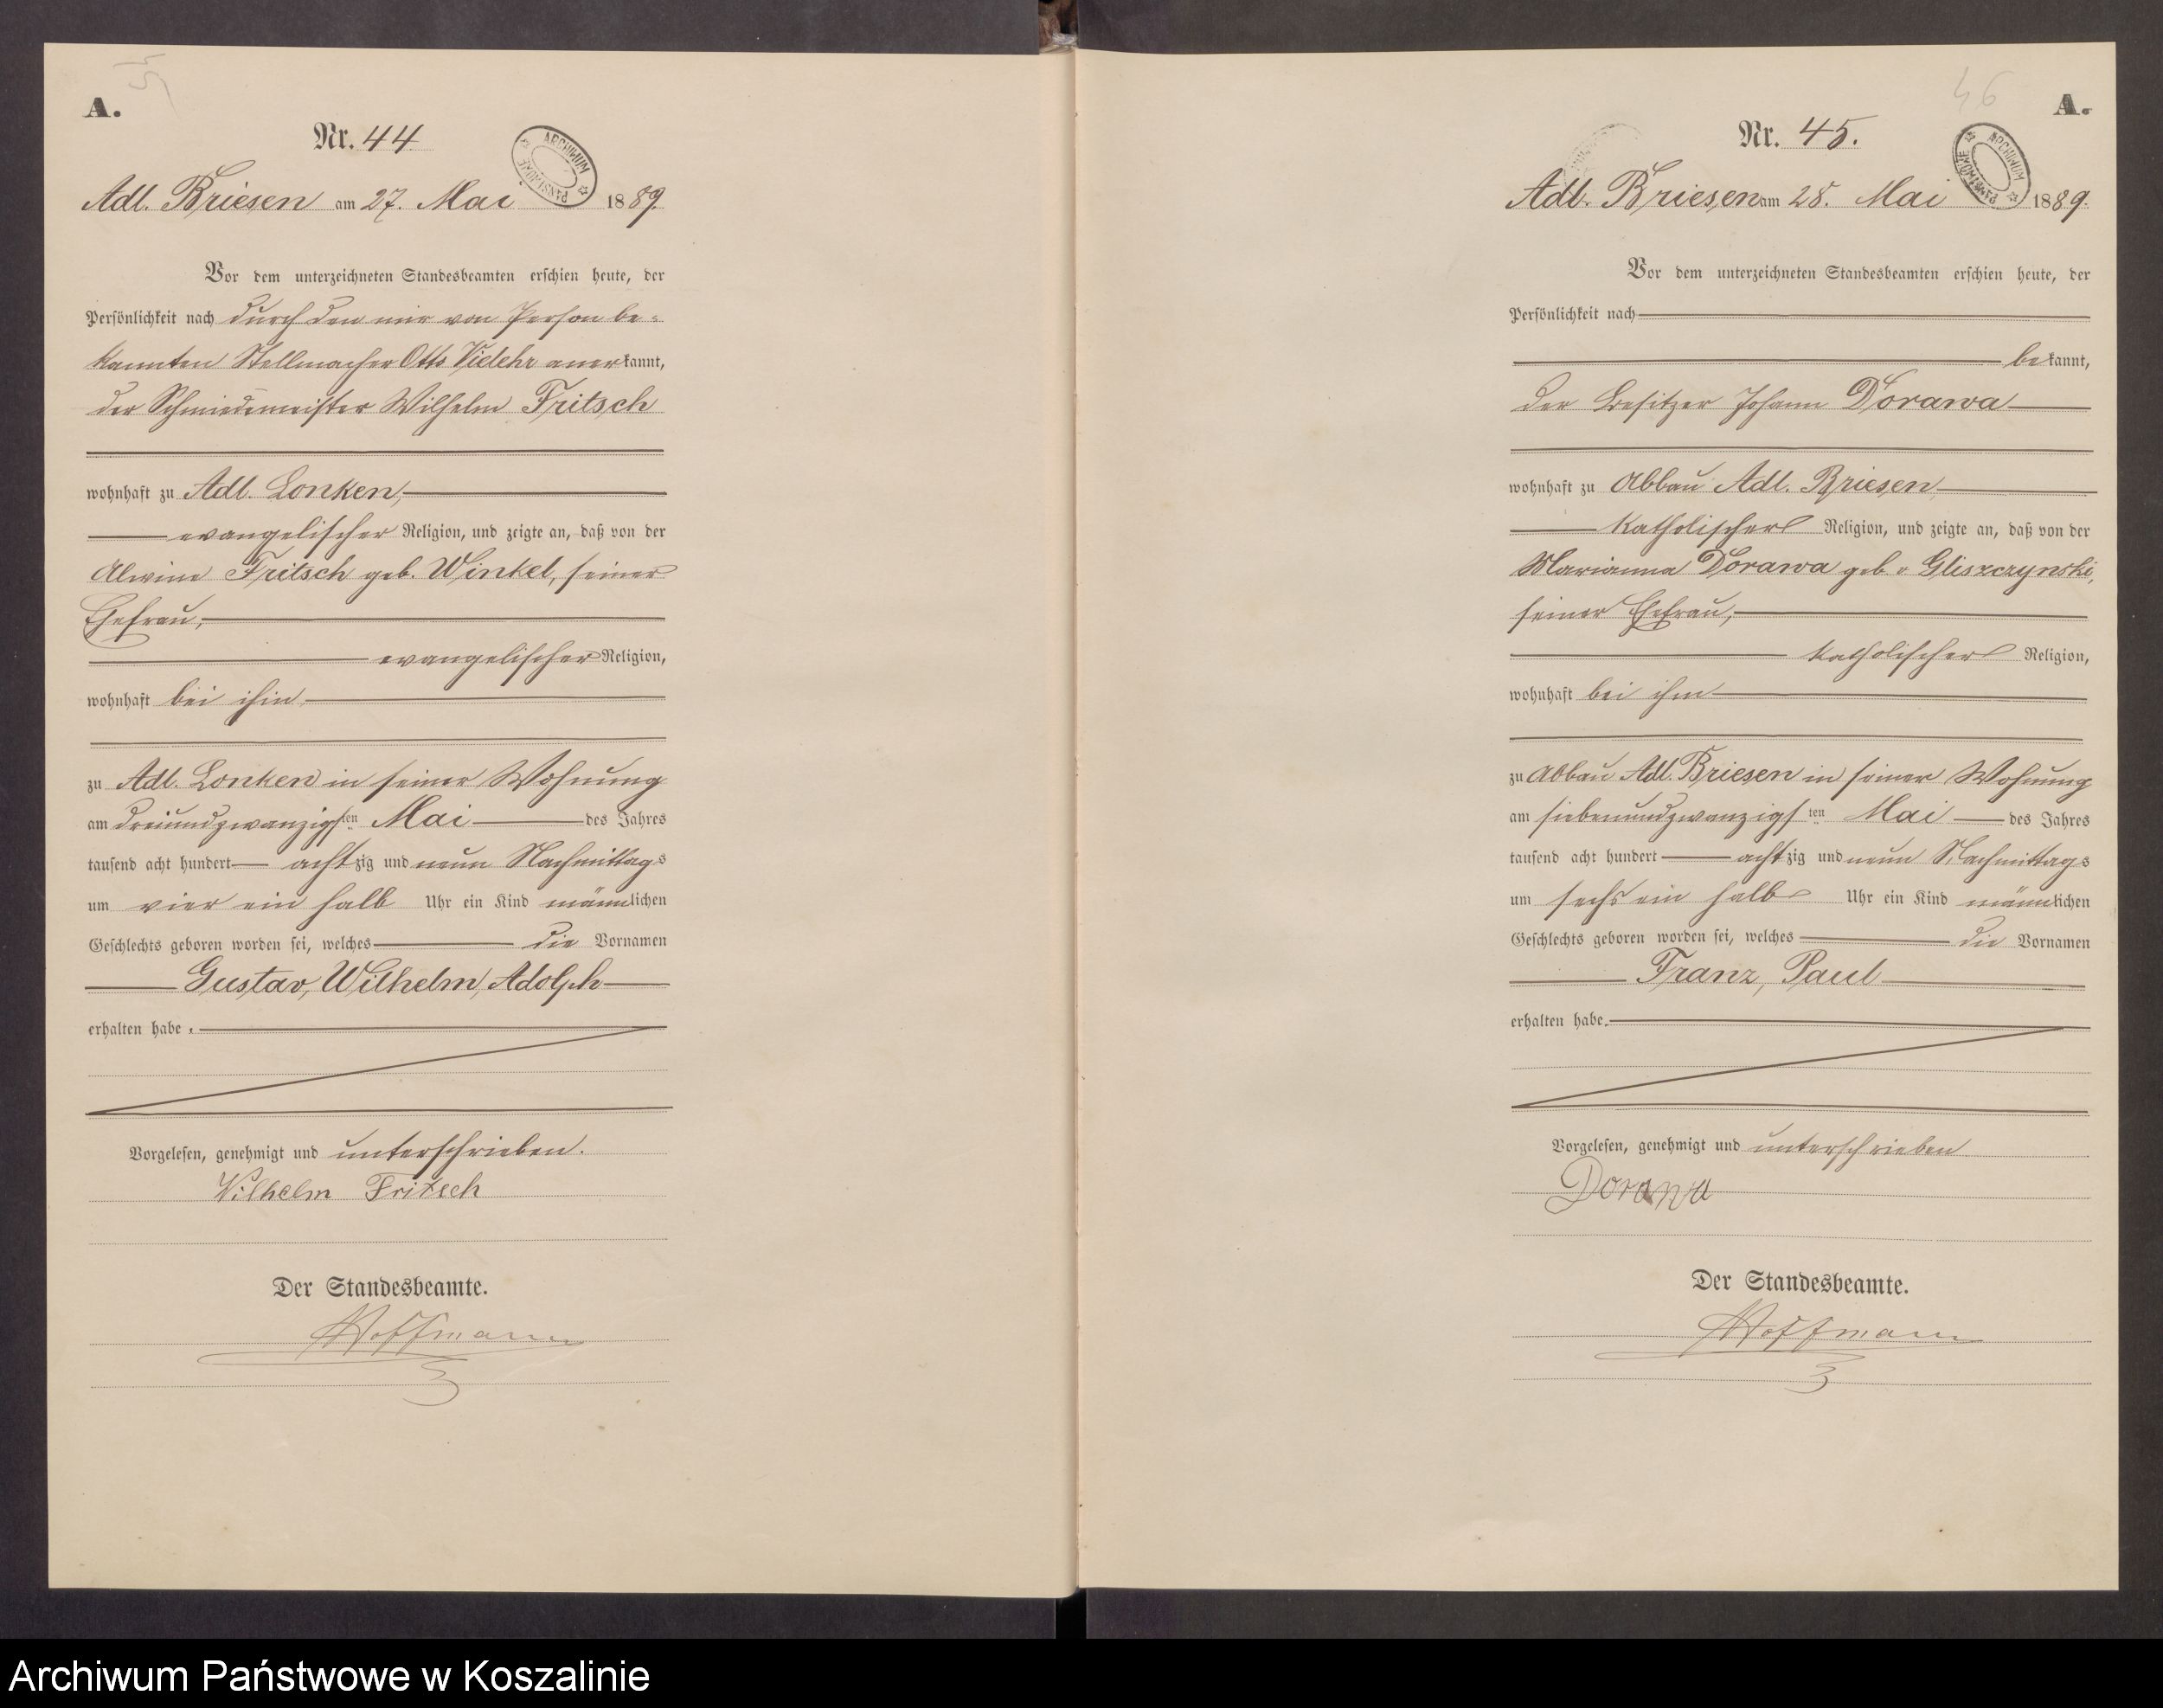 A.
Nr. 44
ARCHIWUM PAŃSTWOWE
Adl. Briesen am 27. Mai 1889.
Vor dem unterzeichneten Standesbeamten erschien heute, der
Persönlichkeit nach durch den mir von Person be-
kannten Stellmacher Otto Vielehr anerkannt,
der Schmiedemeister Wilhelm Fritsch
wohnhaft zu Adl. Lonken,
evangelischer Religion, und zeigte an, daß von der
Alwine Fritsch geb. Winkel, seiner
Ehefrau,
evangelischer Religion,
wohnhaft bei ihm
zu Adl. Lonken in seiner Wohnung
am dreiundzwanzigsten Mai des Jahres
tausend acht hundert achtzig und neun Nachmittags
um vier ein halb Uhr ein Kind männlichen
Geschlechts geboren worden sei, welches die Vornamen
Gustav, Wilhelm, Adolph
erhalten habe.
Vorgelesen, genehmigt und unterschrieben.
Wilhelm Fritsch
Der Standesbeamte.
Hoffmann
46
A.
Nr. 45.
ARCHIWUM PAŃSTWOWE
Adl. Briesen am 28. Mai 1889.
Vor dem unterzeichneten Standesbeamten erschien heute, der
Persönlichkeit nach
bekannt,
der Besitzer Johann Dorawa
wohnhaft zu Abbau Adl. Briesen
katholischer Religion, und zeigte an, daß von der
Marianna Dorawa geb. v Gliszczynski,
seiner Ehefrau,
katholischer Religion,
wohnhaft bei ihm
zu Abbau Adl. Briesen in seiner Wohnung
am siebenundzwanzigsten Mai des Jahres
tausend acht hundert achtzig und neun Nachmittags
um sechs ein halb Uhr ein Kind männlichen
Geschlechts geboren worden sei, welches die Vornamen
Franz, Paul
erhalten habe.
Vorgelesen, genehmigt und unterschrieben
Dorawa
Der Standesbeamte.
Hoffmann
Archiwum Państwowe w Koszalinie